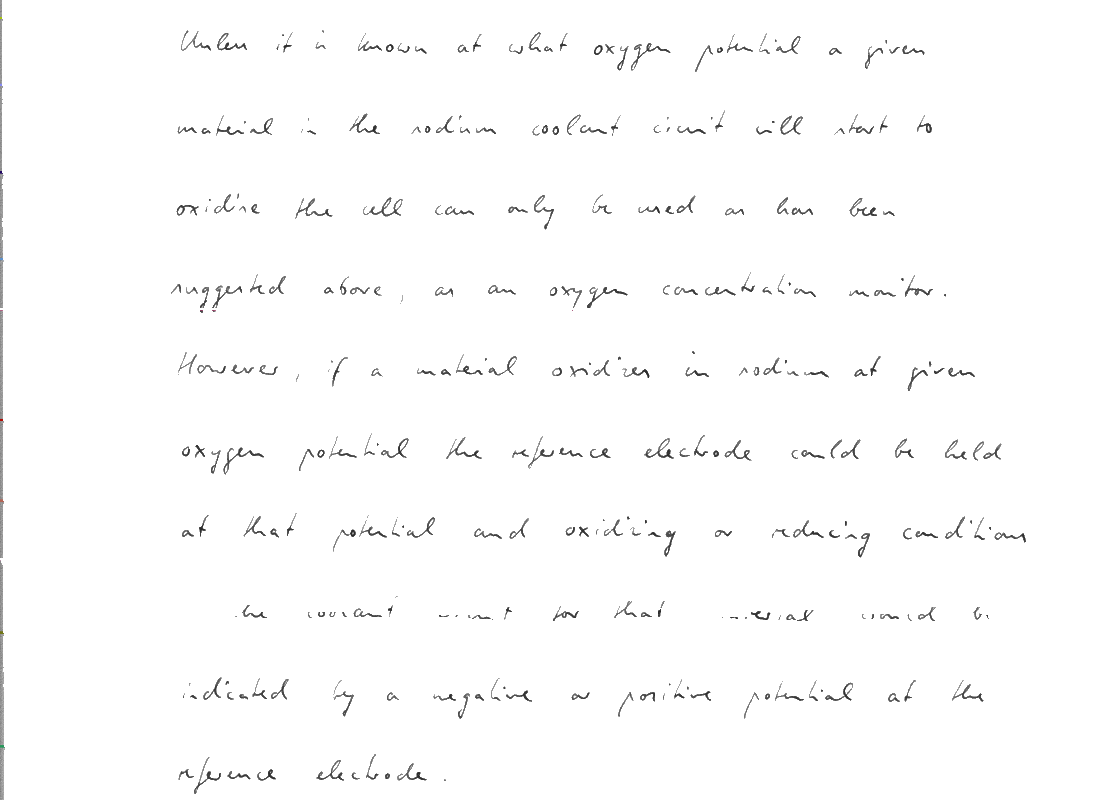 Unless it is known at what oxygen potential a given
material in the sodium coolant circuit will start to
oxidise the cell can only be used as has been
suggested above, as an oxygen concentration monitor.
However, if a material oxidizes in sodium at given
oxygen potential the reference electrode could be held
at that potential and oxidizing or reducing conditions
the coolant circuit for that material would be
indicated by a negative or positive potential at the
reference electrode.